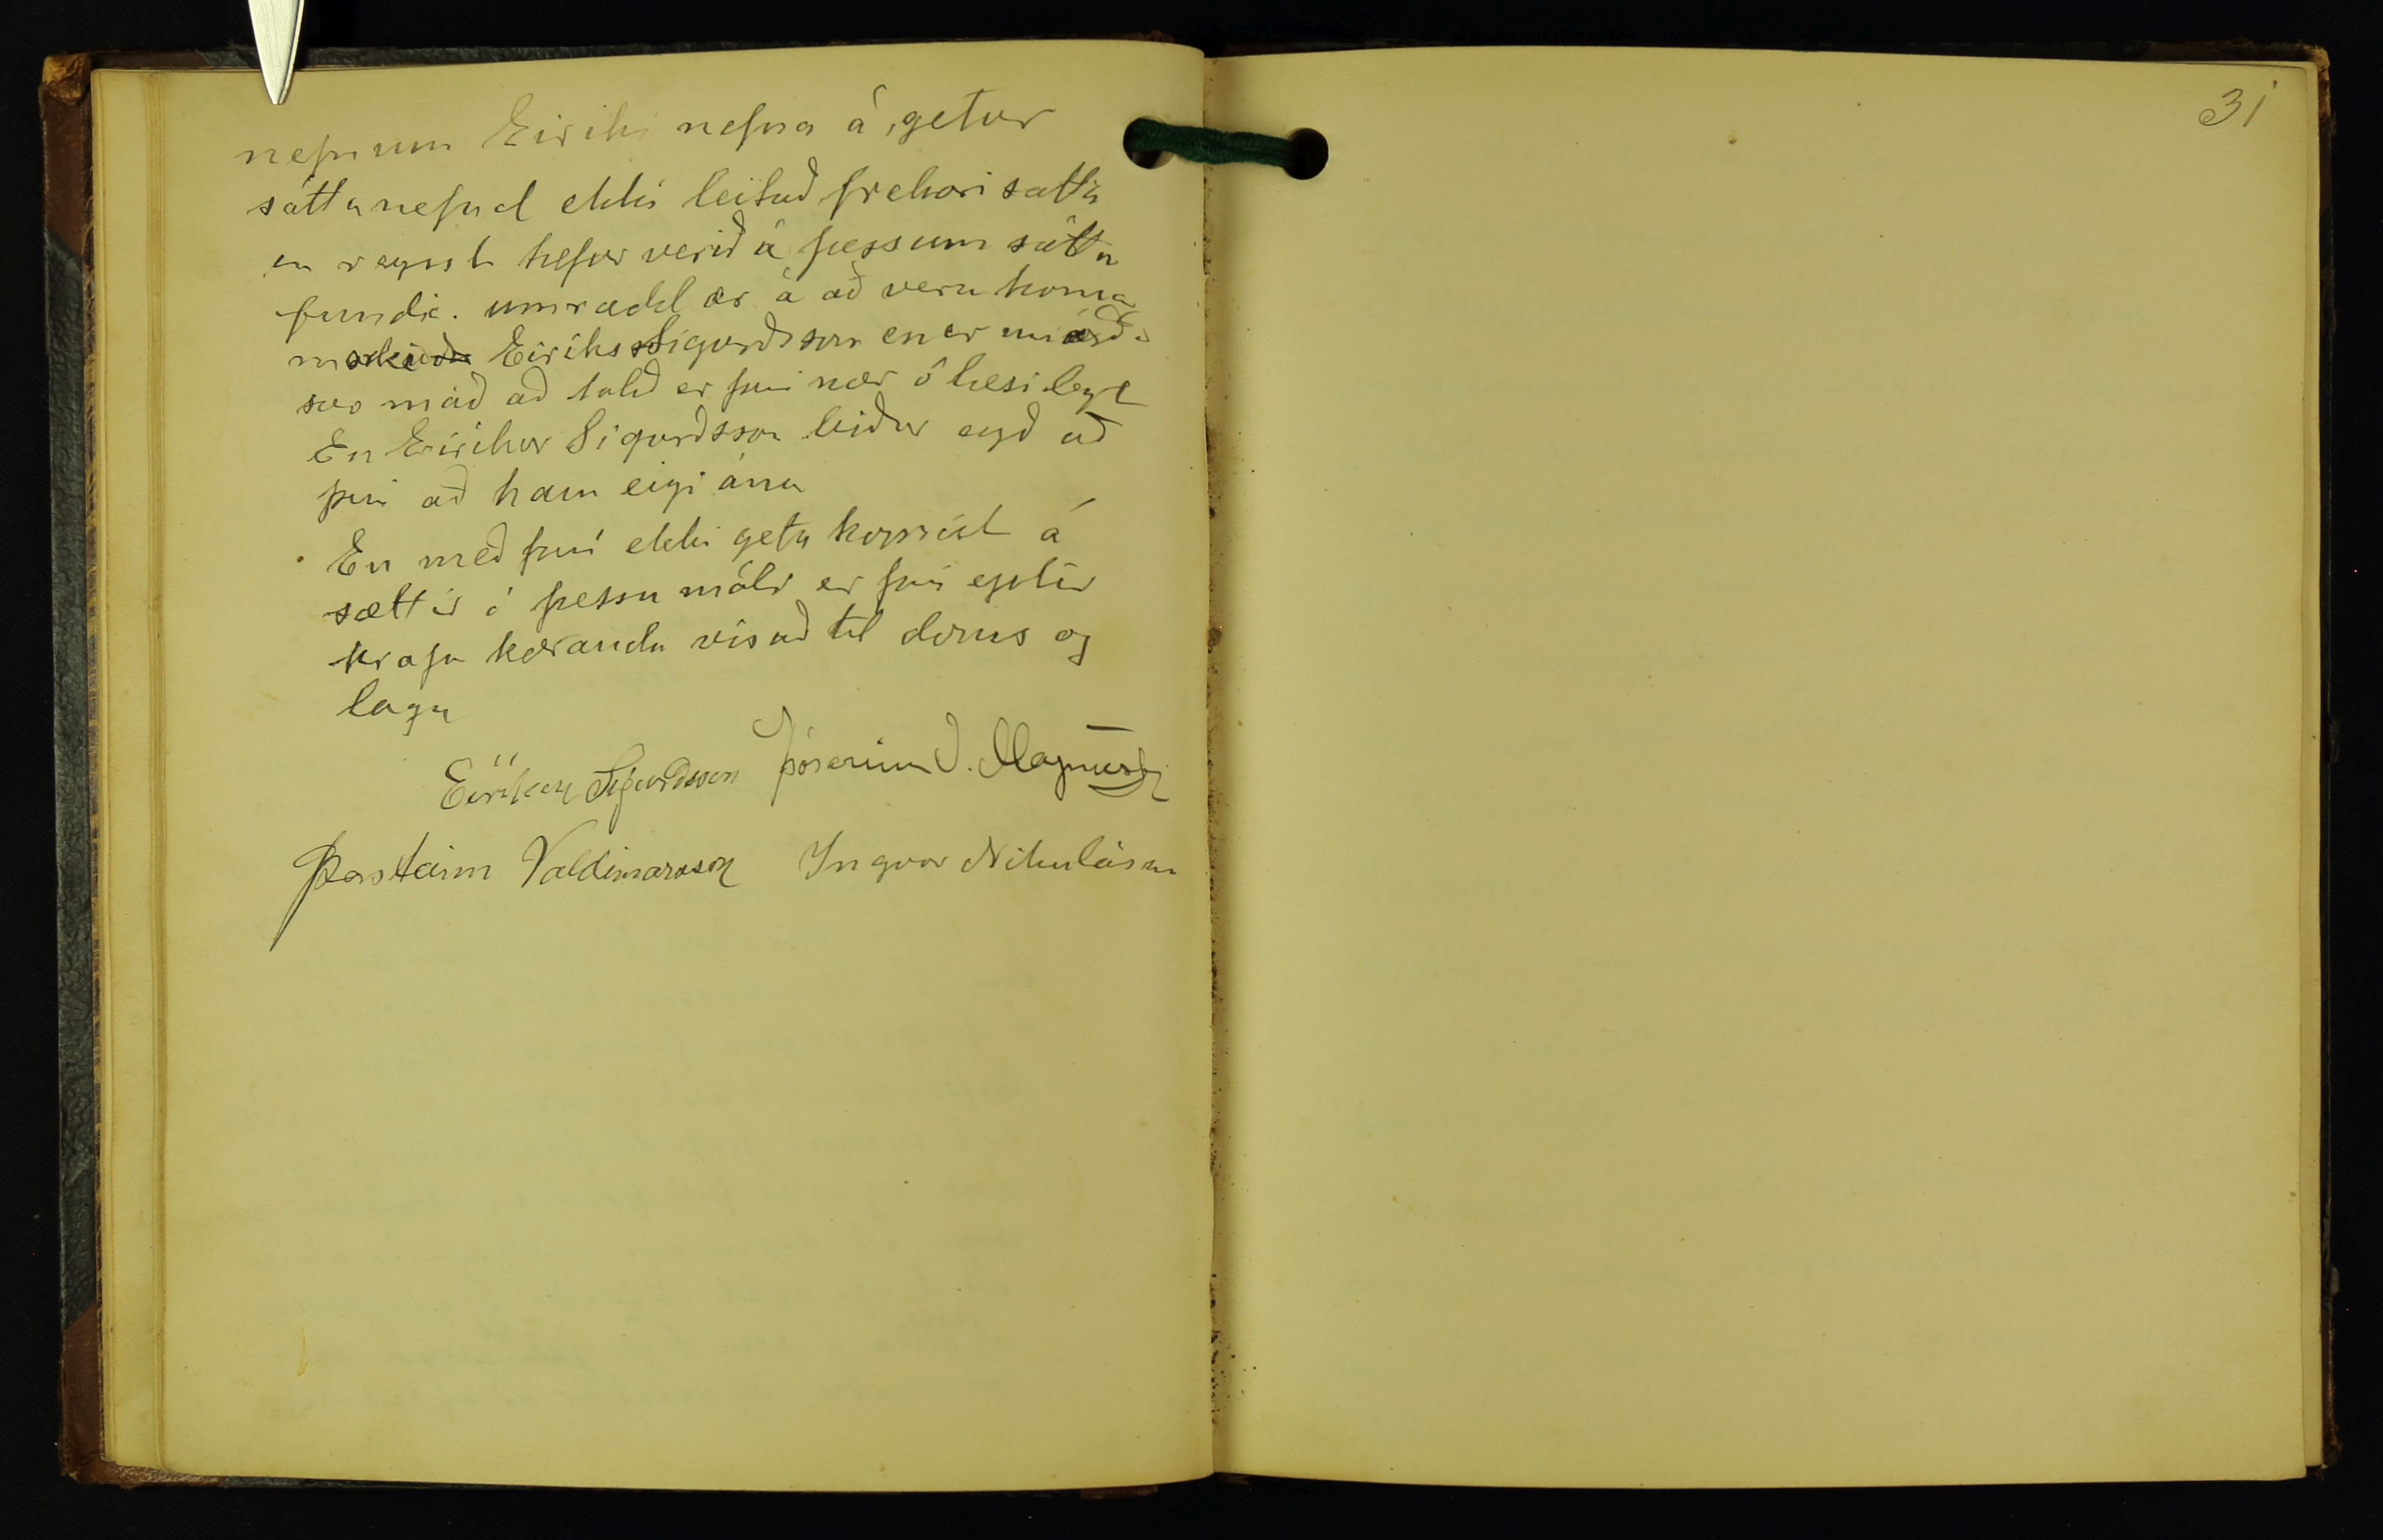 31
nefnum Eiriks nefna á, getur
sáttanefnd ekki leitað frekari sátta
en reynt hefur verið á þessum sátta
fundi. umrædd ær á að vera horna
Eiriks Sigurðsson en er
svo máð að talið er því nær ólæsilegt
En Eirikur Sigurðsson leiður eyð að
því að hann eigi ána
En með því ekki geta komist á
sættir í þessu máli er því eptir
krafu kæranda vísað til doms og
laga
Eiríkur Sigurdsson Þórarinn J. Magnússon
Þorsteinn Valdimarsson Ingvar Nikulásson